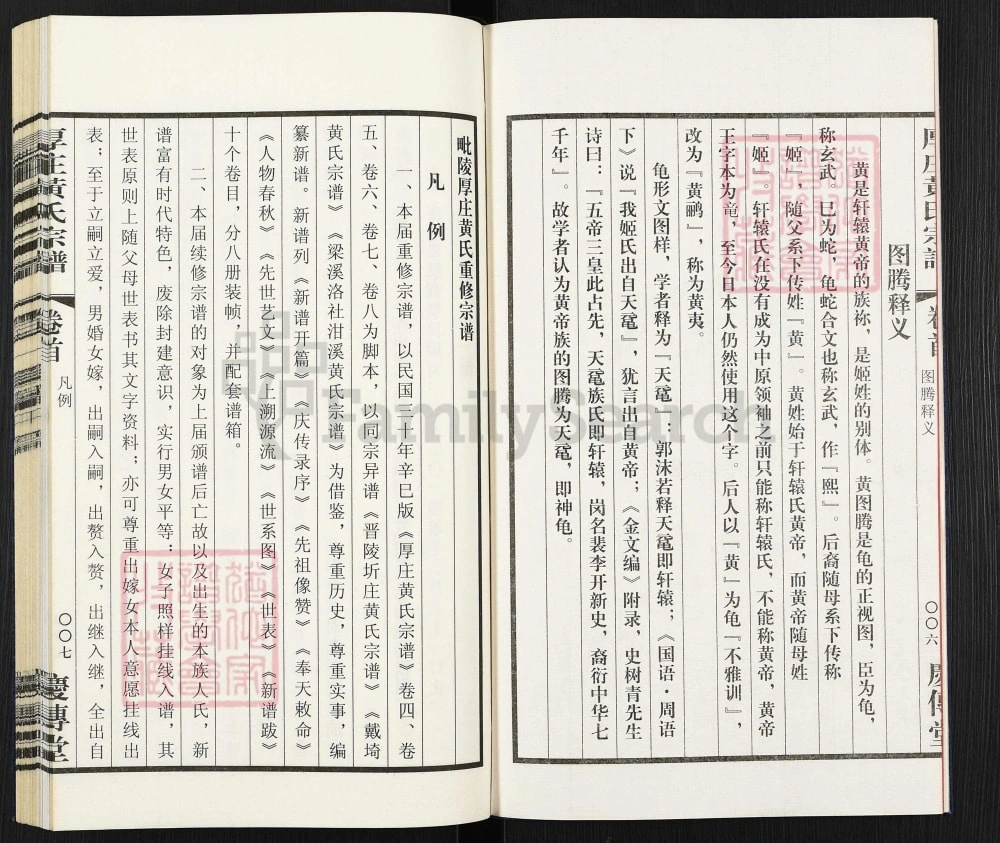 厚庄黄氏宗谱
卷首
图腾释义
〇〇六
慶傳堂
图腾释义
黄是轩辕黄帝的族称，是姬姓的别体。黄图腾是龟的正视图，臣为龟，
称玄武。巳为蛇，龟蛇合文也称玄武，作『熙』。后裔随母系下传称
『姬』，随父系下传姓『黄』。黄姓始于轩辕氏黄帝，而黄帝随母姓
『姬』。轩辕氏在没有成为中原领袖之前只能称轩辕氏，不能称黄帝，黄帝
王字本为竜，至今日本人仍然使用这个字。后人以『黄』为龟『不雅训』，
改为『黄鹂』，称为黄夷。
龟形文图样，学者释为『天鼋』：郭沫若释天鼋即轩辕；《国语·周语
下》说『我姬氏出自天鼋』，犹言出自黄帝；《金文编》附录，史树青先生
诗曰：『五帝三皇此占先，天鼋族氏即轩辕，闵名裴李开新史，裔衍中华七
千年』。故学者认为黄帝族的图腾为天鼋，即神龟。
毗陵厚庄黄氏重修宗谱
凡例
一、本届重修宗谱，以民国三十年辛巳版《厚庄黄氏宗谱》卷四、卷
五、卷六、卷七、卷八为脚本，以同宗异谱《晋陵圻庄黄氏宗谱》《戴埼
黄氏宗谱》《梁溪洛社泔溪黄氏宗谱》为借鉴，尊重历史，尊重实事，编
纂新谱。新谱列《新谱开篇》《庆传录序》《先祖像赞》《奉天敕命》
《人物春秋》《先世艺文》《上溯源流》《世系图》《世表》《新谱跋》
十个卷目，分八册装帧，并配套谱箱。
二、本届续修宗谱的对象为上届颁谱后亡故以及出生的本族人氏，新
谱富有时代特色，废除封建意识，实行男女平等：女子照样挂线入谱，其
世表原则上随父母世表书其文字资料；亦可尊重出嫁女本人意愿挂线出
表；至于立嗣立爱，男婚女嫁，出嗣入嗣，出赘入赘，出继入继，全出自
厚庄黄氏宗譜
卷首
凡例
〇〇七
慶傳堂
FamilySearch